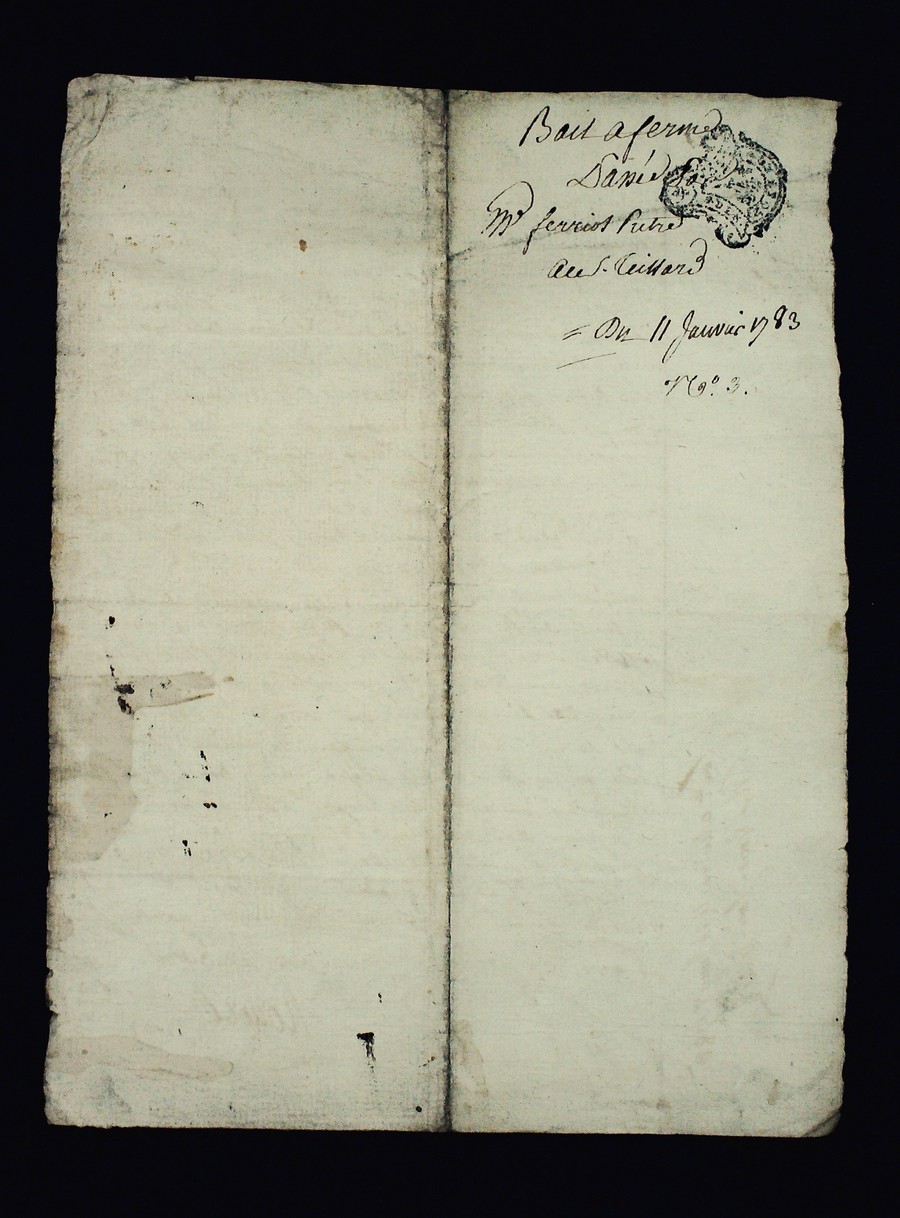 Bail a ferme
Passé Par
Mr. ferriot Pretre
Au S. Teissard
= Du 11 Janvier 1783
No. 3.